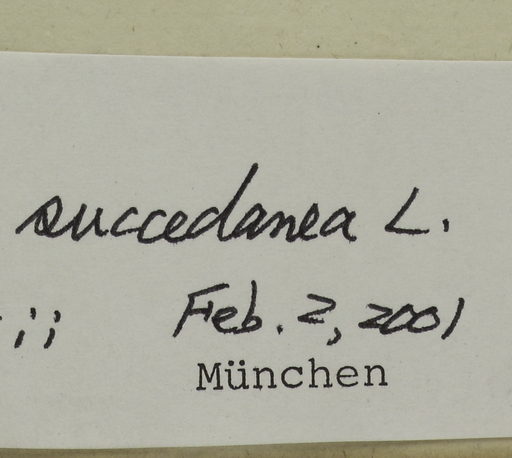 succedanea L.
Feb. 2, 2001
München